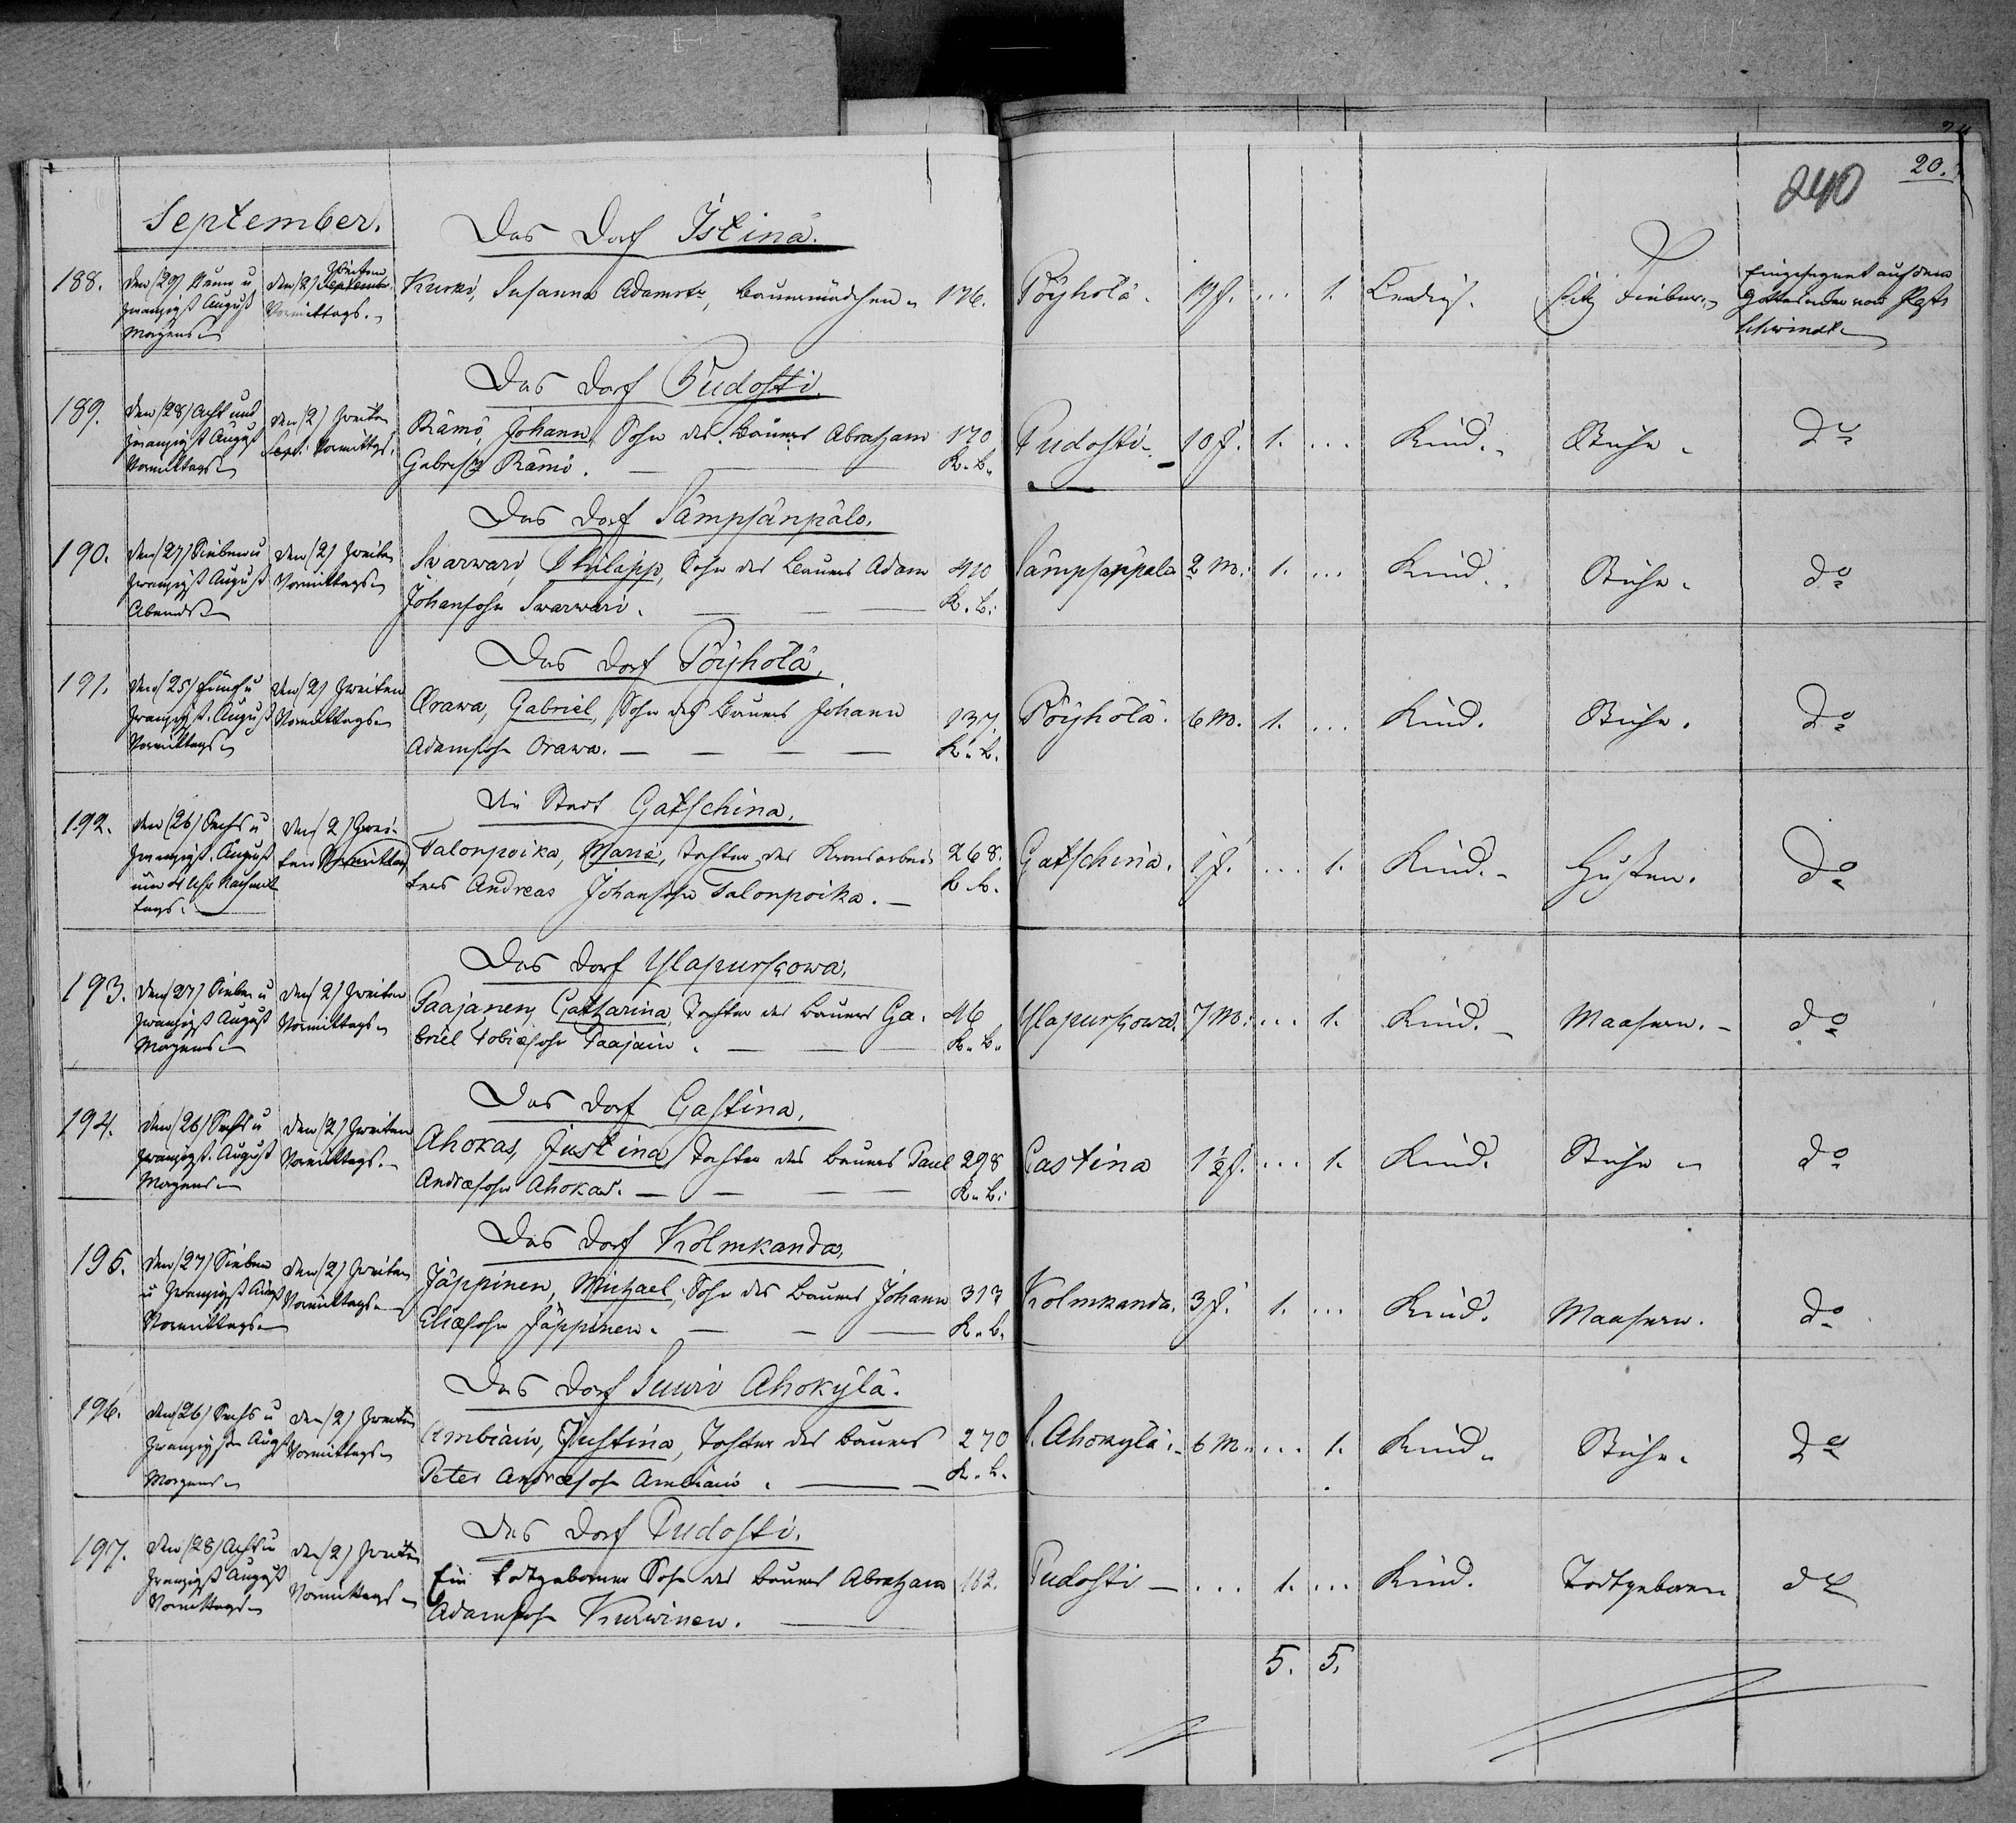 20.
240
September.
Das Dorf Istinä.
188. den (29) Neun u zwanzigst August Morgens den (2) Zweiten September Vormittags. Kurki, Susanna Adamstr, Bauermädchen 176. Pöyhölä. 19 J. ... 1. Ledig. Hitz Fieber. Eingesegnet auf dem Gottesacker vom Past. Schwindt
Das Dorf Pudosti.
189. den (28) Acht und zwanzigst August Vormittags den (2) Zweiten Sept. Vormittags. Rämö, Johann, Sohn des Bauers Abraham 170
Gabriels. Rämö. K. B. Pudosti 10 J. 1. ... Kind. Ruhr do
Das Dorf Sämpsänpälo.
190. den (27) Sieben u zwanzigst August Abends den (2) Zweiten Vormittags Swarwari, Philipp, Sohn des Bauers Adam 410
Johansohn Swarwari. K. B. Sämpsäppälo 2 M. 1. ... Kind. Ruhr. do
Das Dorf Pöyhölä.
191. den (25) Fünf u zwanzigst. August Vormittags den (2) Zweiten Vormittags Orawa, Gabriel, Sohn des Bauers Johann 137.
Adamsohn Orawa. K. B. Pöyhölä. 6 M. 1. ... Kind. Ruhr. do
Die Stadt Gatschina.
192. den (26) Sechs u zwanzigst. August um 4 Uhr Nachmittags. den (2) Zweiten Vormittag Talonpoika, Maria, Tochter des Kronsarbeiters 268.
Andreas Johansohn Talonpoika. K. B. Gatschina. 1 J. ... 1. Kind. Husten. do
Das Dorf Ylapurskowa.
193. den (27) Sieben u zwanzigst August Morgens den (2) Zweiten Vormittags Paajanen, Catharina, Tochter des Bauers Ga- 46
briel Tobiæsohn Paajain. K. B. Ylapurskowa. 7 M. ... 1. Kind. Maasern. do
Das Dorf Gastina.
194. den (26) Sechs u zwanzigst. August Morgens den (2) Zweiten Vormittags. Ahokas, Justina, Tochter des Bauers Paul 298
Andræsohn Ahokas. K. B. Castina 1½ J. ... 1. Kind. Ruhr do
Das Dorf Kolmkanda.
195. den (27) Sieben u zwanzigst Augst Vormittags den (2) Zweiten Vormittags Jäppinen, Michael, Sohn des Bauers Johann 313
Eliæsohn Jäppinen. K. B. Kolmkanda. 3 J. 1. ... Kind. Maasern. do
Das Dorf Suuri Ahokylä.
196. den (26) Sechs u zwanzigsten Augst Morgens den (2) Zweiten Vormittags Ambiain, Justina, Tochter des Bauers 270
Peter Andræsohn Ambiain. K. B. S. Ahokylä. 6 M. ... 1. Kind. Ruhr. do
Das Dorf Pudosti.
197. den (28) Acht u zwanzigst August Vormittags den (2) Zweiten Vormittags Ein todtgeborner Sohn des Bauers Abraham 162.
Adamsohn Kurwinen. Pudosti ... 1. ... Kind. Todtgeboren do
5. 5.